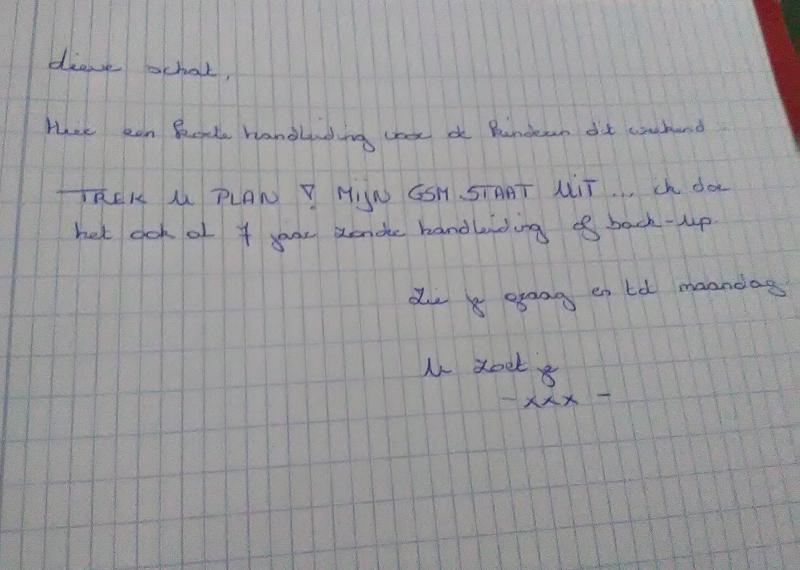 Lieve schat,
Hier een korte handleiding voor de kinderen dit weekend
TREK U PLAN! MIJN GSM STAAT UIT... ik doe
het ook al 7 jaar zonder handleiding of back-up.
Zie je graag en tot maandag
U zoetje
- xxx -